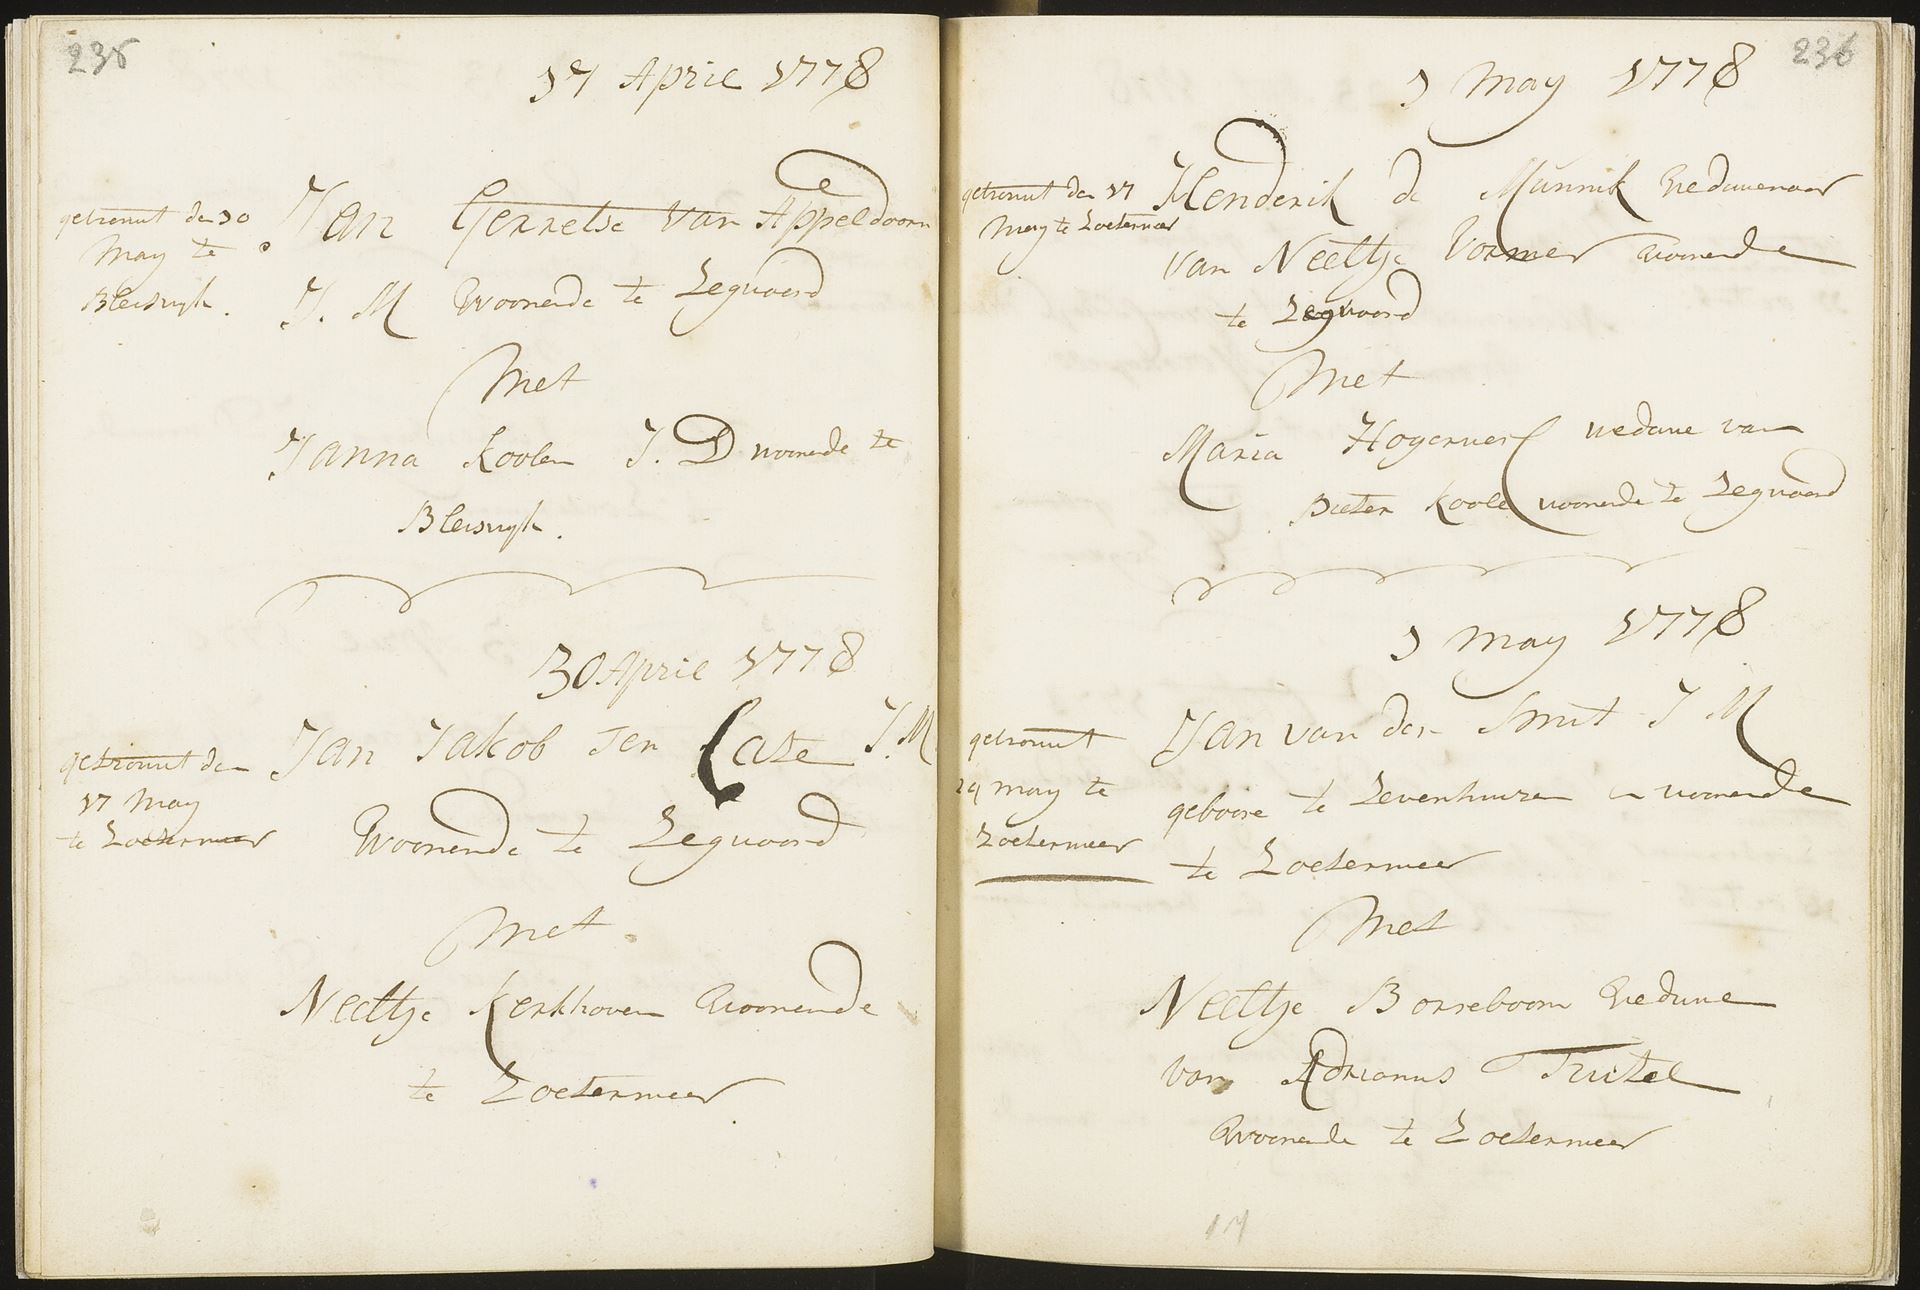 235
17 April 1778
getrouwt den 10
May te
Bleiswyk.
Jan Gerretse van Appeldoorn
J. M woonende te Zegwaard
Met
Janna Koolen J. D woonende te
Bleiswyk.
30 April 1778
getrouwt den
17 May
te Zoetermeer
Jan Jakob Ten Cate J. M
Woonende te Zegwaard
Met
Neeltje Kerkhoven Woonende
te Zoetermeer
236
1 May 1778
getrouwt den 17
May te Zoetermeer
Henderik de Munnik Weduwenaar
van Neeltje Vormer woonende
te Zegwaard
Met
Maria Hogerwerf weduwe van
Pieter Koole woonende te Zegwaard
1 May 1778
getrouwt
24 may te
Zoetermeer
Jan van der Smit J M
geboore te Zevenhuizen en woonende
te Zoetermeer
Met
Neeltje Borreboom Weduwe
van Adrianus Tuitel
Woonende te Zoetermeer